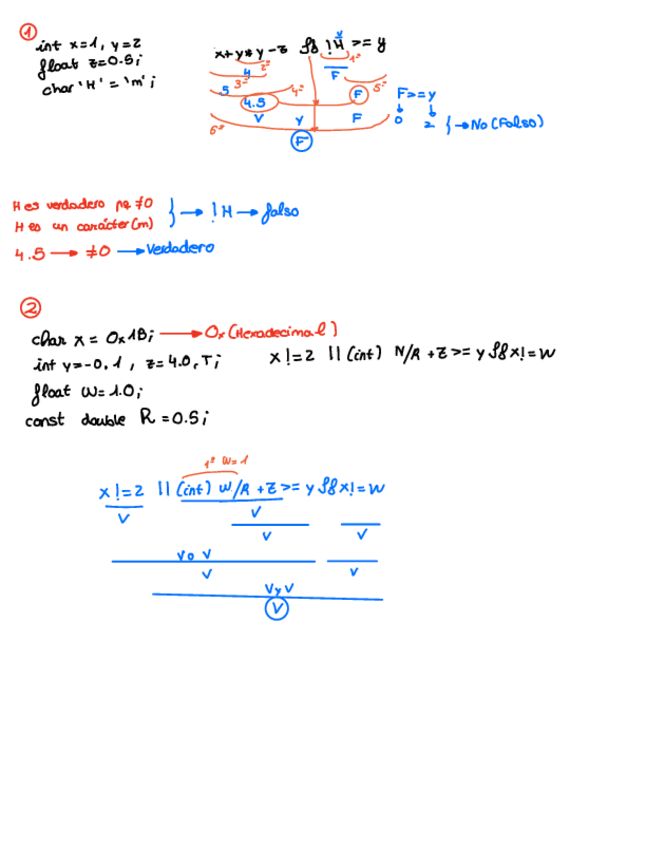 1
int x=1, y=2
float z=0.5;
char 'H' = 'm';
x+y*y-z && !H >= y
V
1º
2º
4
F
3º
.5
4º
F
5º
4.5
V y F
6º
F
F>=y
0 2 } → No (Falso)
H es verdadero pq ≠0
H es un carácter (m) } → !H → falso
4.5 → ≠0 → Verdadero
2
char x = 0x1B; → 0x (Hexadecimal)
int y=-0.1, z=4.0, T;
x!=2 || (int) N/R +Z>= y && x!=W
float W=1.0;
const double R=0.5;
1º W=1
x!=2 || (int) W/R +Z>= y && x!=W
V V
V V
V o V
V V
V y V
V